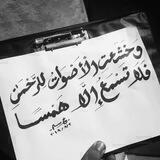 وخشعت الأصوات للرحمن
فلا تسمع إلا همسا